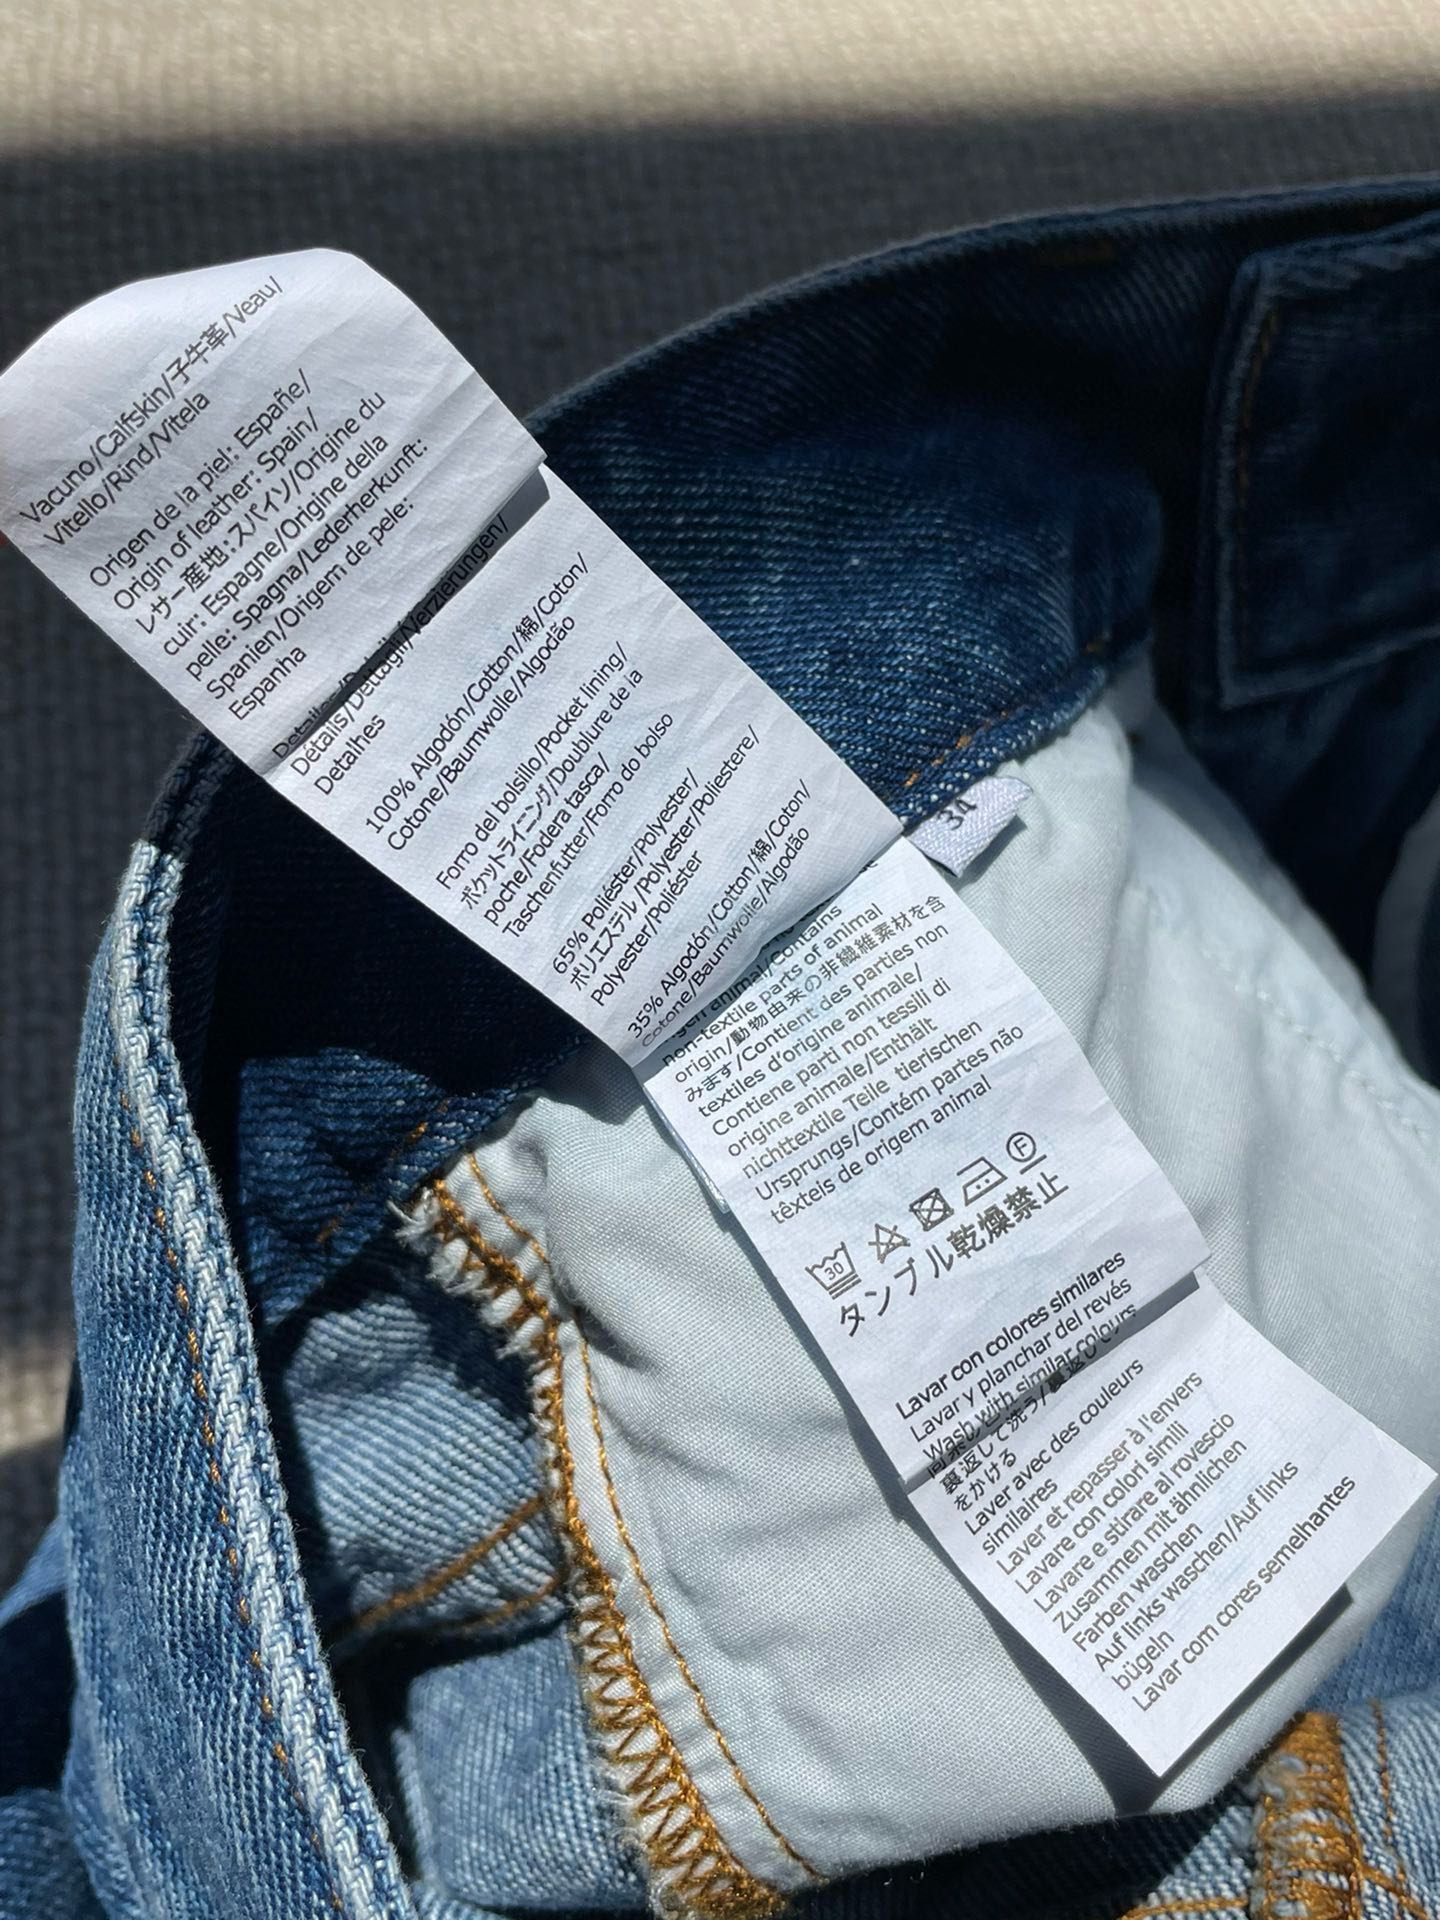 Vacuno/Calfskin/子牛革/Veau/
Vitello/Rind/Vitela
Origen de la piel: Españe/
Origin of leather: Spain/
レザー産地:スパイン/Origine du
cuir: Espagne/Origine della
pelle: Spagna/Lederherkunft:
Spanien/Origem de pele:
Espanha
Détails/Dettagli/Verzierungen/
Detalhes
100% Algodón/Cotton/綿/Coton/
Cotone/Baumwolle/Algodão
Forro del bolsillo/Pocket lining/
ポケットライニング/Doublure de la
poche/Fodera tasca/
Taschenfutter/Forro do bolso
65% Poliéster/Polyester/
ポリエステル/Polyester/Poliestere/
Polyester/Poliéster
35% Algodón/Cotton/綿/Coton/
Cotone/Baumwolle/Algodão
34
animal/Contains
non-textile parts of animal
origin/動物由来の非繊維素材を含
みます/Contient des parties non
textiles d'origine animale/
Contiene parti non tessili di
origine animale/Enthält
nichttextile Teile tierischen
Ursprungs/Contém partes não
têxteis de origem animal
30 F
タンブル乾燥禁止
Lavar con colores similares
Lavar y planchar del revés
Wash with similar colours
裏返して洗う/裏返し
裏返して
をかける
Laver avec des couleurs
similaires
Laver et repasser à l'envers
Lavare con colori simili
Lavare e stirare al rovescio
Zusammen mit ähnlichen
Farben waschen
Auf links waschen/Auf links
bügeln
Lavar com cores semelhantes